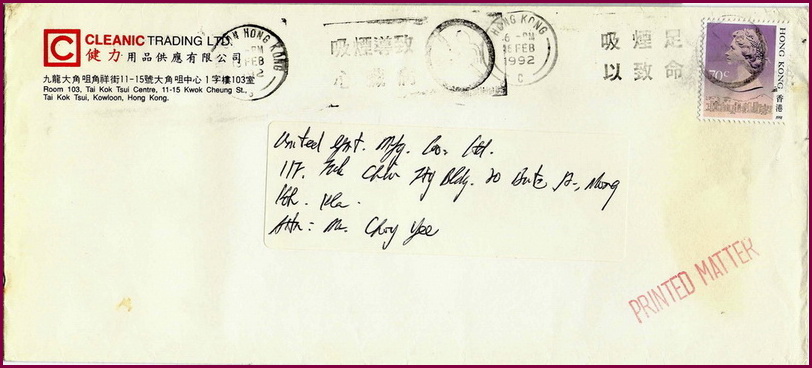 CLEANIC TRADING LTD.
健力用品供應有限公司
九龍大角咀角祥街11-15號大角咀中心1字樓103室
Room 103, Tai Kok Tsui Centre, 11-15 Kwok Cheung St.,
Tai Kok Tsui, Kowloon, Hong Kong.
HONG KONG
PM
FEB
C
吸煙導致
心臟病
HONG KONG
6 - PM
FEB
1992
C
吸煙足
以致命
70c
HONG KONG 香港
United Mfg. Co. Ltd.
117, Bldg. 20 Bute St., Mong
Kok. Kln.
Attn: Mr. Choy Yee
PRINTED MATTER